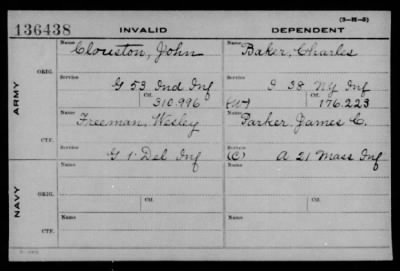 (3-H-5)
136438 INVALID DEPENDENT
ARMY
ORIG.
Name Clouston, John Name Baker, Charles
Service G 53 Ind Inf Service I 38 NY Inf
Ctf. 310.996 (W) Ctf. 176.223
CTF.
Name Freeman, Wesley Name Parker James C.
Service G 1 Del Inf Service (C) A 21 Mass Inf
NAVY
ORIG.
Name Name
Service Ctf. Service Ctf.
CTF.
Name Name
Service Service